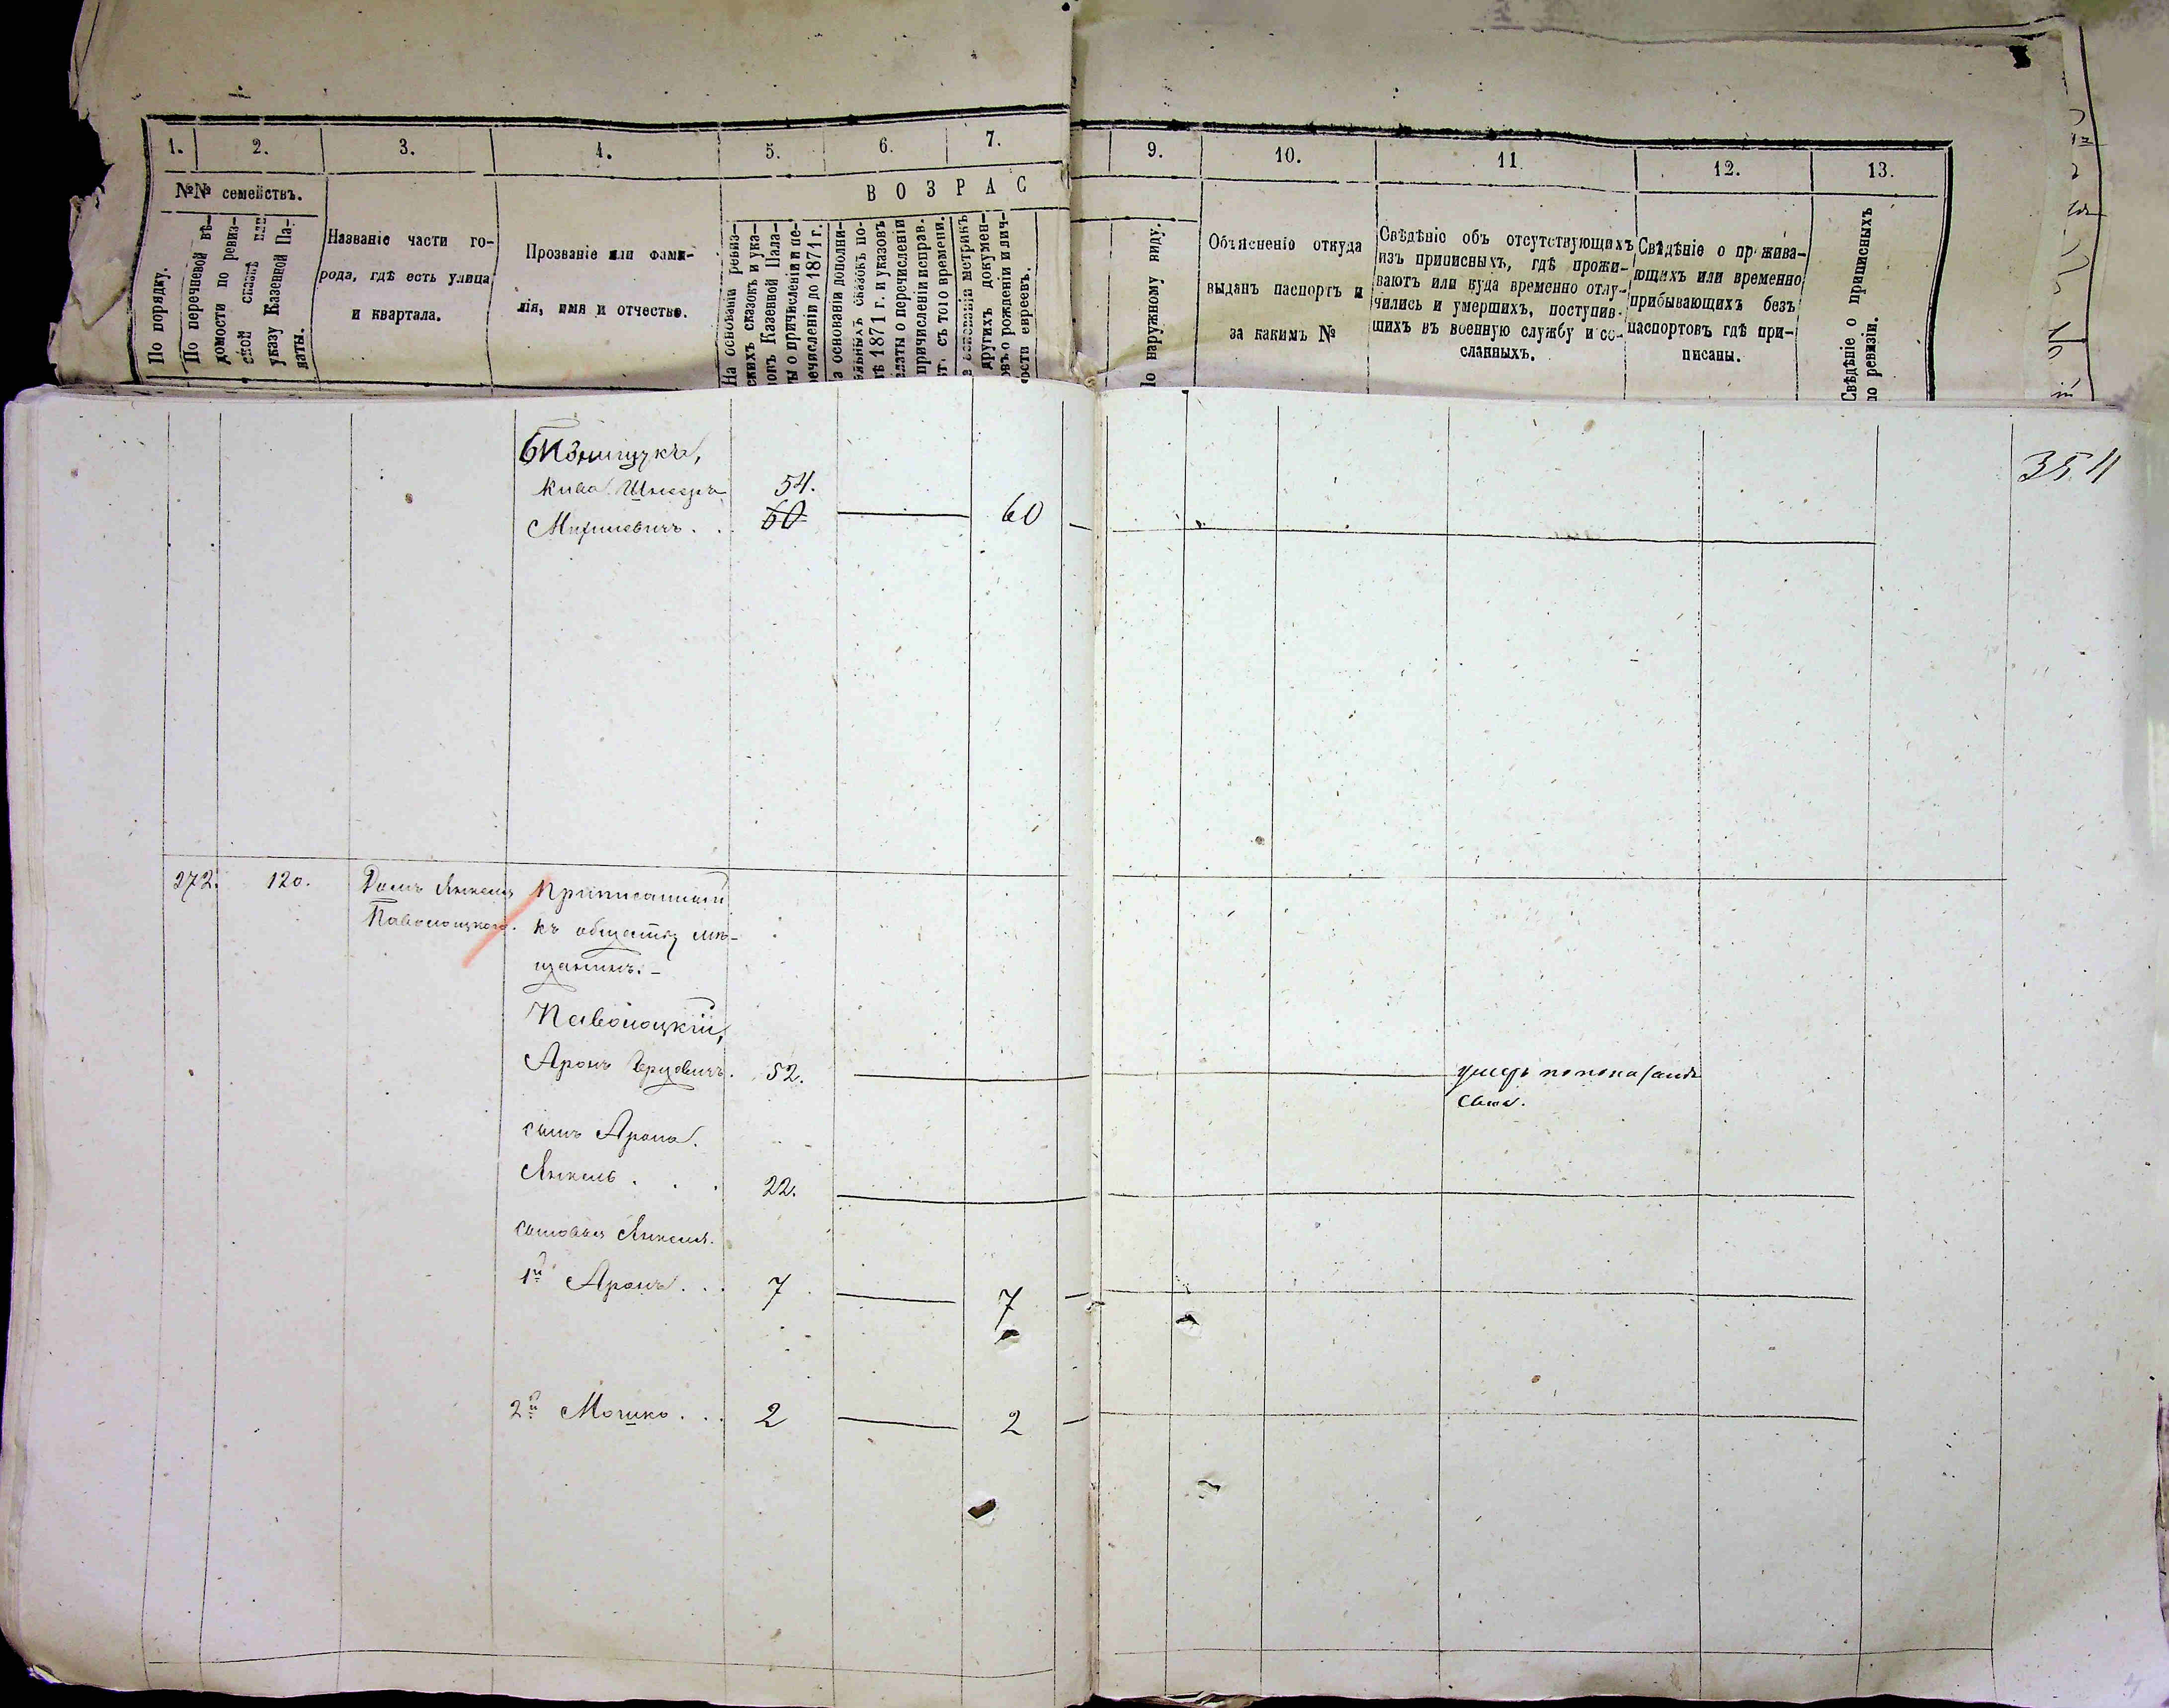 1. 2. 3. 4. 5. 6. 7. 9. 10. 11. 12. 13.
№№ семействъ.
По порядку.
По перечневой вѣ-
домости по ревиз-
ской сказкѣ или
указу Казенной Па-
латы.
Названіе части го-
рода, гдѣ есть улица
и квартала.
Прозваніе или фами-
лія, имя и отчество.
ВОЗРАС
На основаніи ревиз-
скихъ сказокъ и ука-
зовъ Казенной Пала-
ты о причисленіи и пе-
речисленіи до 1871 г.
а основаніи дополни-
ельныхъ сказокъ по-
лѣ 1871 г. и указовъ
алаты о перечисленіи
причисленіи исправ.
ст. съ того времени.
а основаніи метрикъ
другихъ докумен-
овъ о рожденіи и лич-
ости евреевъ.
По наружному виду.
Объясненіе откуда
выданъ паспортъ и
за какимъ №
Свѣдѣніе объ отсутствующихъ
изъ приписныхъ, гдѣ прожи-
ваютъ или куда временно отлу-
чились и умершихъ, поступив-
шихъ въ военную службу и со-
сланныхъ.
Свѣдѣніе о прожива-
ющихъ или временно
прибывающихъ безъ
паспортовъ гдѣ при-
писаны.
Свѣдѣніе о приписныхъ
по ревизіи.
354
54.
60 60
272. 120. Домъ Янкеля Приписанный
Паволоцкаго. къ обществу мѣ-
щанинъ.
Паволоцкій,
Аронъ Берковичъ. 52. умеръ по показанію
сына.
сынъ Арона.
Янкель . . . 22.
сыновья Янкеля.
1й Аронъ . . . 7 7
2й Мошко . . . 2 2